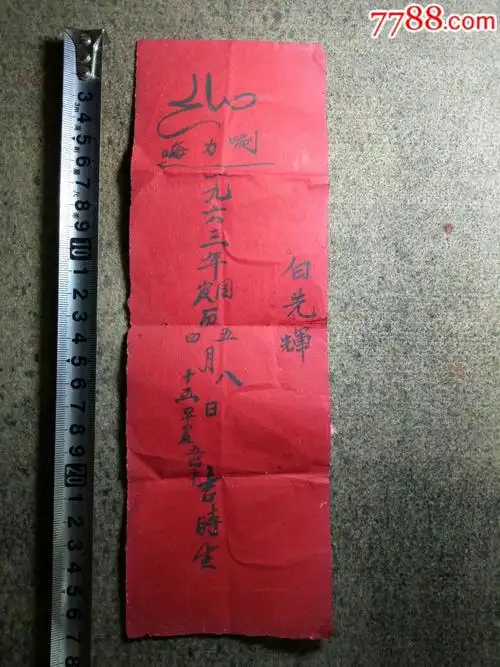 7788.com
中国收藏热线
嗨力唎
白先輝
一九六三年国历五月八日
四
十五早晨五点
吉時生
3 4 5 6 7 8 9 10 1 2 3 4 5 6 7 8 9 20 1 2 3 4 5 6 7 8